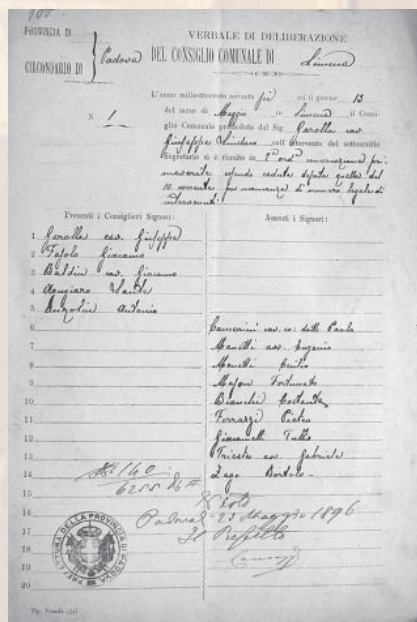 PROVINCIA DI
CIRCONDARIO DI
Padova
VERBALE DI DELIBERAZIONE
DEL CONSIGLIO COMUNALE DI Limena
L'anno milleottocento novanta sei ed il giorno 13
N. 1 del mese di Maggio in Limena il Consi-
glio Comunale presieduto dal Sig. Garolla cav.
Giuseppe Sindaco coll'intervento del sottoscritto
Segretario si è riunito in
essendo caduta deserta quella del
10 corrente per mancanza di numero legale di
intervenuti.
Presenti i Consiglieri Signori:
1 Garolla cav. Giuseppe
2 Fasolo Giacomo
3 Baldin cav. Giacomo
4 Agugiaro Sante
5 Anzolin Antonio
6
7
8
9
10
11
12
13
14
15
16
17
18
19
20
Assenti i Signori:
Camerini Paolo
Manetti avv. Eugenio
Manetti Emilio
Fortunato
Bianchi
Ferrazzi Pietro
Giacomelli Tullo
Trieste av. Gabriele
Zago Bortolo
N. 140
6255
Visto
Padova 23 Maggio 1896
Il Prefetto
PREFETTURA DELLA PROVINCIA DI PADOVA